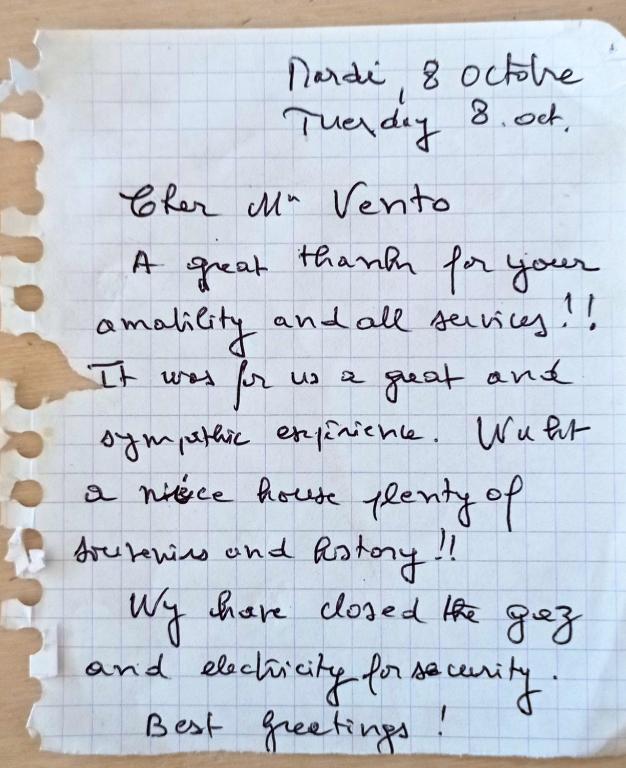 Mardi, 8 Octobre
Tuesday 8. oct.
Cher Mr Vento
A great thanks for your
amability and all services!!
It was for us a great and
sympathic expirience. Wuht
a niece house plenty of
souvenirs and history!!
Wy have closed the gaz
and electricity for security.
Best greetings!